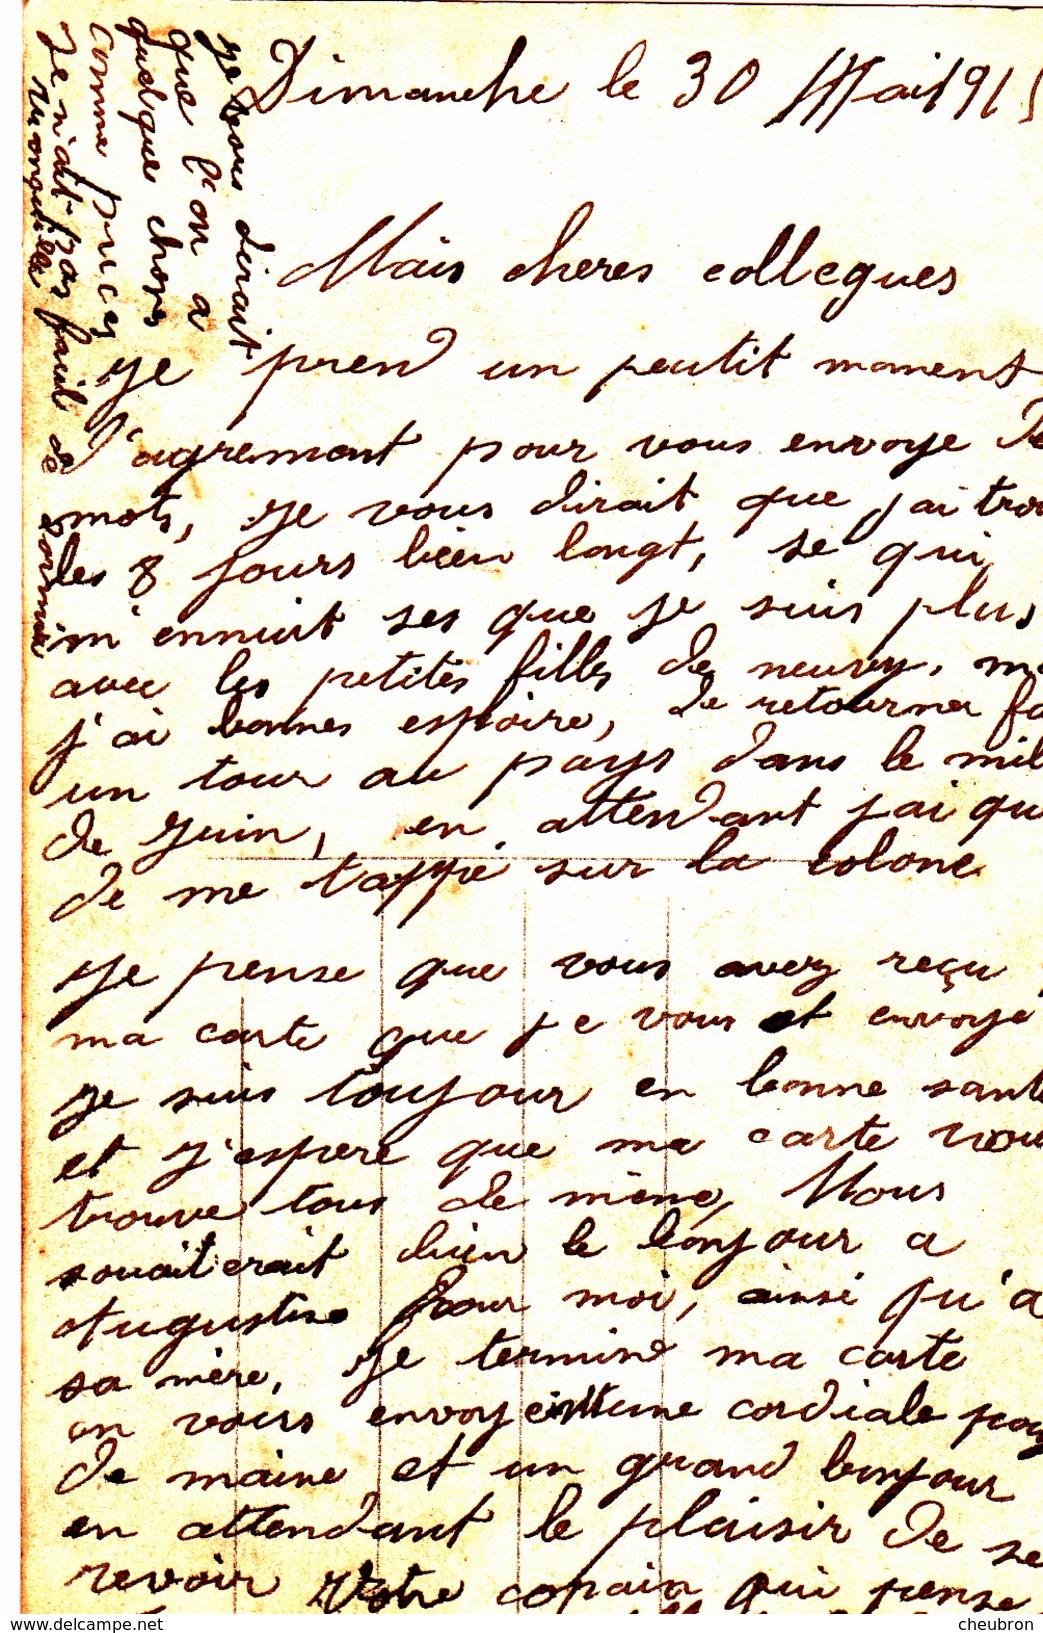 Dimanche le 30 Mai 191
Mais cheres collegues
Je prend un peutit moment
d'agremont pour vous envoye
mots, Je vous dirait que j'ai
les 8 jours bien longt, se qui
m'ennuit ses que je suis plus
avec les petites filles de neuvy,
j'ai bonnes espoire, de retourner
un tour au pays dans le
de Juin, en attendant j'ai
de me tappé sur la colone
Je pense que vous avez reçu
ma carte que je vous et envoye
Je suis toujour en bonne santé
et j'espere que ma carte vous
trouve tous de même, Vous
souaiterait bien le bonjour a
Augustine pour moi, ainsi qu'a
sa mère, Je termine ma carte
en vous envoyent une cordiale
de maine et un grand bonjour
en attendant le plaisir de se
revoir Votre copain qui pense
Je vous dirait
que l'on a
quelque choses
comme puces
Je n'ait pas facil de dormir
www.delcampe.net
cheubron